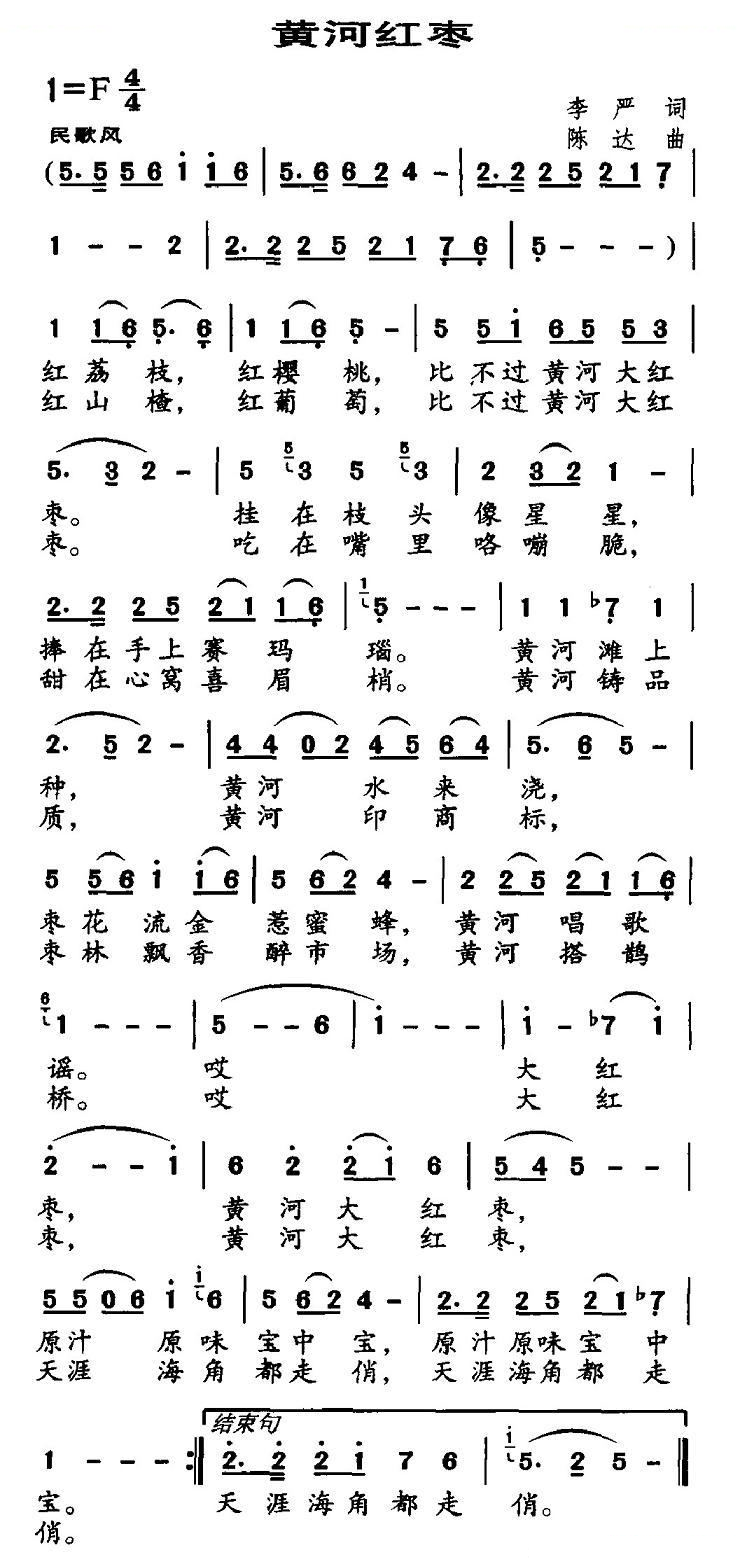 黄河红枣
1=F 4/4
李严词
民歌风
陈达曲
(5. 5 5 6 i i 6 | 5. 6 6 2 4 - | 2. 2 2 5 2 1 7 |
1 - - 2 | 2. 2 2 5 2 1 7 6 | 5 - - - ) |
1 1 6 5. 6 | 1 1 6 5 - | 5 5 i 6 5 5 3 |
红荔枝， 红樱桃， 比不过黄河大红
红山楂， 红葡萄， 比不过黄河大红
5. 3 2 - | 5 5 3 5 5 3 | 2 3 2 1 - |
枣。 挂在枝头像星星，
枣。 吃在嘴里咯嘣脆，
2. 2 2 5 2 1 1 6 | 1 5 - - - | 1 1 b7 1
捧在手上赛玛瑙。 黄河滩上
甜在心窝喜眉梢。 黄河铸品
2. 5 2 - | 4 4 0 2 4 5 6 4 | 5. 6 5 - |
种， 黄河水来浇，
质， 黄河印商标，
5 5 6 i i 6 | 5 6 2 4 - | 2 2 5 2 1 1 6 |
枣花流金惹蜜蜂， 黄河唱歌
枣林飘香醉市场， 黄河搭鹊
6 1 - - - | 5 - - 6 | i - - - | i - b7 i |
谣。 哎 大红
桥。 哎 大红
2 - - i | 6 2 2 i 6 | 5 4 5 - - |
枣， 黄河大红枣，
枣， 黄河大红枣，
5 5 0 6 i i 6 | 5 6 2 4 - | 2. 2 2 5 2 1 b7 |
原汁原味宝中宝， 原汁原味宝中
天涯海角都走俏， 天涯海角都走
结束句
1 - - - :| 2. 2 2 i 7 6 | i 5. 2 5 - |
宝。 天涯海角都走俏。
俏。